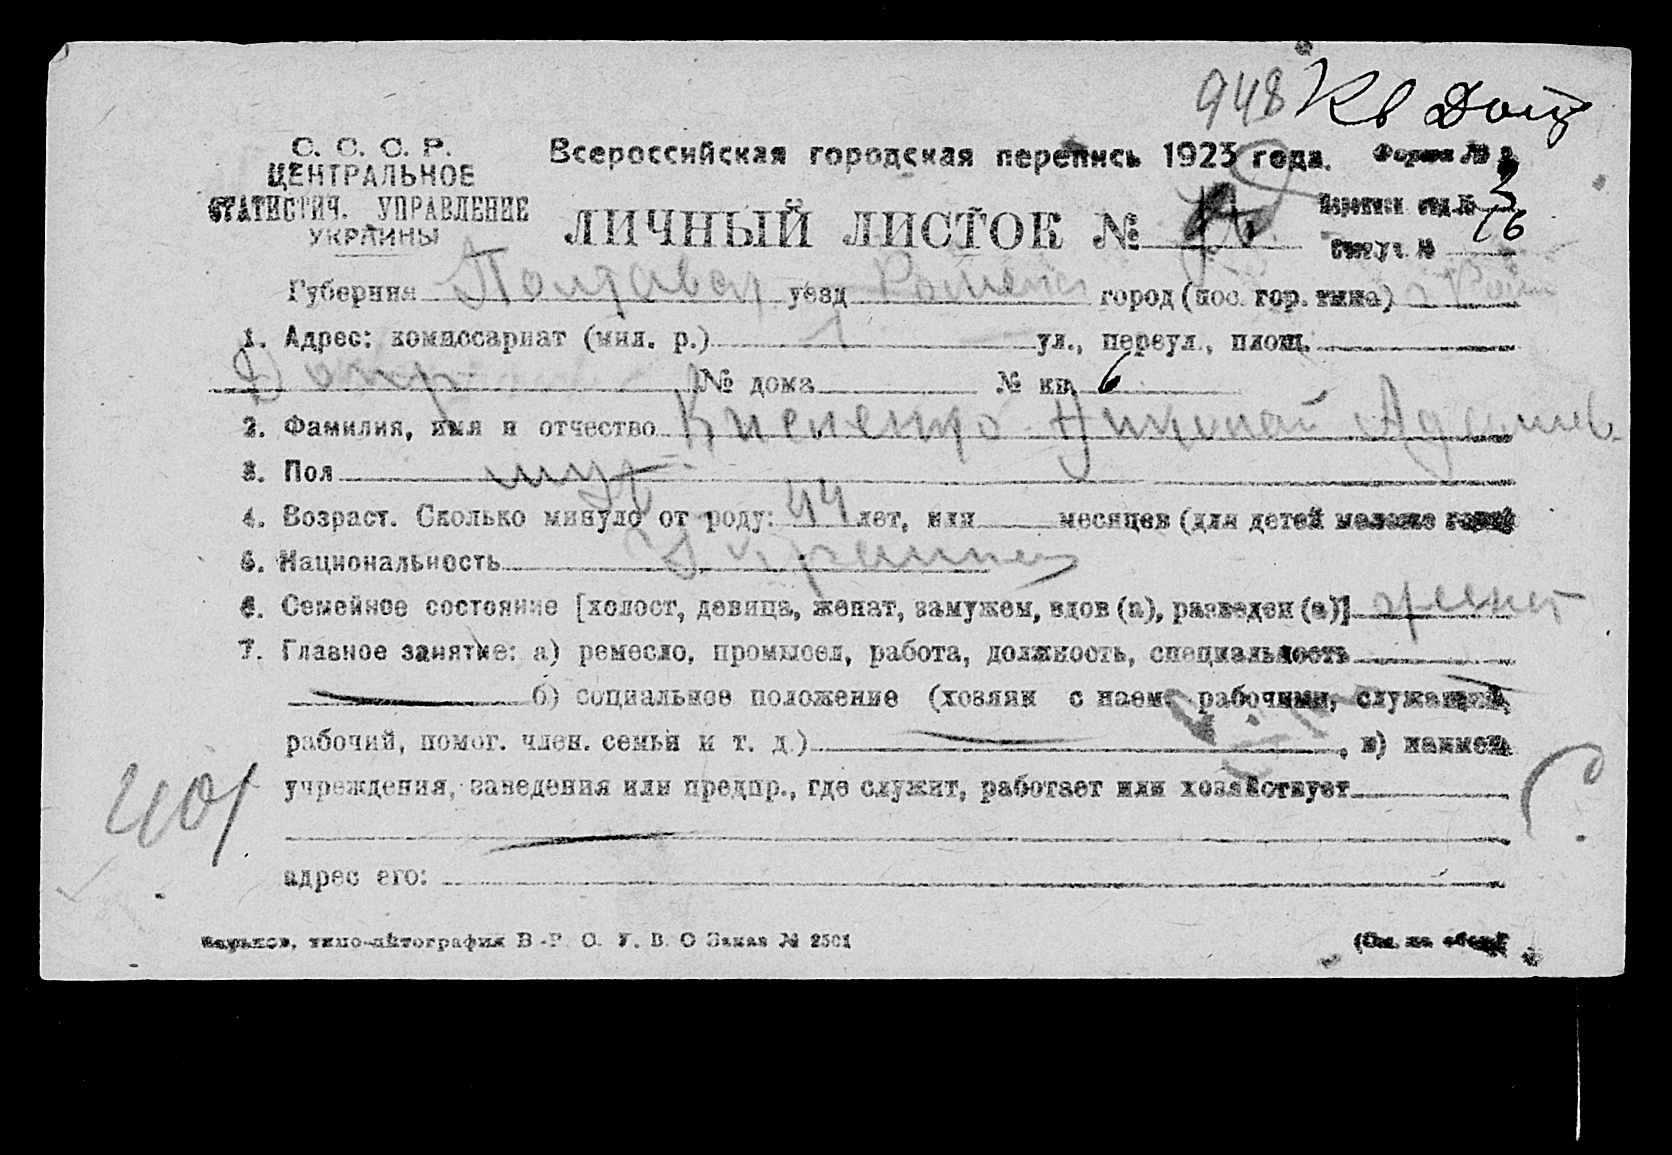 948 Кв Доп
С. С. С. Р.
ЦЕНТРАЛЬНОЕ
СТАТИСТИЧ. УПРАВЛЕНИЕ
УКРАИНЫ
Всероссийская городская перепись 1923 года. Форма № 2
ЛИЧНЫЙ ЛИСТОК №
Переписн отд. № 3
Счетч. № 16
Губерния Полтавск уезд Роменск город (пос. гор. типа) г Ромн
1. Адрес: комиссариат (мил. р.) 1 ул., переул., площ.
Допр № дома № кв. 6
2. Фамилия, имя и отчество Николай Адамов.
3. Пол муж.
4. Возраст. Сколько минуло от роду: 44 лет, или месяцев (для детей моложе года)
5. Национальность Украинец
6. Семейное состояние [холост, девица, женат, замужем, вдов (а), разведен (а)] женат
7. Главное занятие: а) ремесло, промысел, работа, должность, специальность
б) социальное положение (хозяин с наемн. рабочими, служащий,
рабочий, помог. член. семьи и т. д.) , в) наимен.
учреждения, заведения или предпр., где служит, работает или хозяйствует
401
адрес его:
Харьков, типо-литография В.-Р. С. У. В. О Заказ № 2501
(См. на обор.)